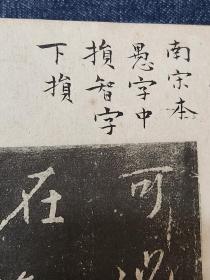 南宋本
愚字中
損智字
下損
可
在